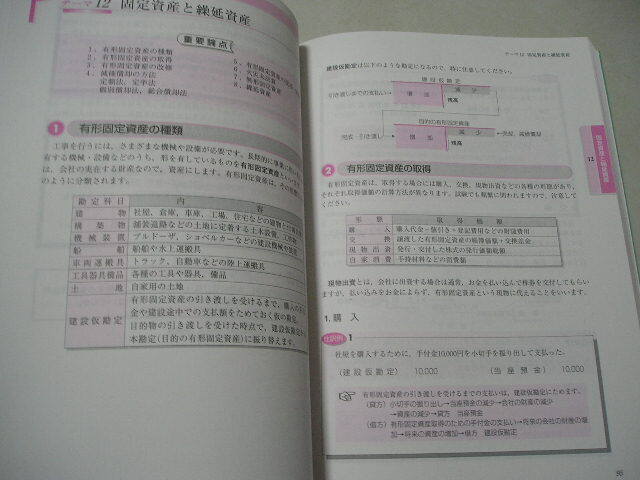 テーマ 12 固定資産と繰延資産
重要論点
1、有形固定資産の種類
2、有形固定資産の取得
3、有形固定資産の改修
4、減価償却の方法
定額法、定率法
個別償却法、総合償却法
5、有形固定資産の
6、火災未決算
7、無形固定資産
8、繰延資産
1 有形固定資産の種類
工事を行うには、さまざまな機械や設備が必要です。長期的に事業に
有する機械・設備などのうち、形を有しているものを有形固定資産とい
は、会社の実在する財産なので、資産にします。有形固定資産は、その
のように分類されます。
勘定科目 内容
建物 社屋、倉庫、車庫、工場、住宅などの建物と
構築物 舗装道路などの土地に定着する土木設備、工作物
機械装置 ブルドーザ、ショベルカーなどの建設機械や
船舶 船舶や水上運搬具
車両運搬具 トラック、自動車などの陸上運搬具
工具器具備品 各種の工具や器具、備品
土地 自家用の土地
建設仮勘定 有形固定資産の引き渡しを受けるまで、購入の
金や建設途中での支払額をためておく仮の勘定。
目的物の引き渡しを受けた時点で、建設仮勘定
本勘定(目的の有形固定資産)に振り替えます。
テーマ12 固定資産と繰延資産
建設仮勘定は以下のような勘定になるので、特に注意してください。
建設仮勘定
引き渡しまでの支払い→ 増加 減少
残高
目的の有形固定資産
完成・引き渡し→ 増加 減少 →売却、減価償却
残高
2 有形固定資産の取得
有形固定資産は、取得する場合には購入、交換、現物出資などの各種の形態があり、
それぞれ取得価額の計算方法が異なります。試験でも頻繁に問われますので、注意して
ください。
形態 取得価額
購入 購入代金-値引き+登記費用などの付随費用
交換 譲渡した有形固定資産の帳簿価額+交換差金
現物出資 発行・交付した株式の発行価額総額
自家建設 手持材料などの消費額
現物出資とは、会社に出資する場合は通常、お金を払い込んで株券を交付してもらい
ますが、払い込みをお金によらず、有形固定資産という現物に代えることをいいます。
1、購入
仕訳例 1
社屋を購入するために、手付金10,000円を小切手を振り出して支払った。
(建設仮勘定) 10,000 (当座預金) 10,000
有形固定資産の引き渡しを受けるまでの支払いは、建設仮勘定にためます。
(貸方)小切手の振り出し→当座預金の減少→会社の財産の減少
→資産の減少→貸方 当座預金
(借方)有形固定資産取得のための手付金の支払い→将来の会社の財産の増
加→将来の資産の増加→借方 建設仮勘定
固定資産と繰延資産
12
95